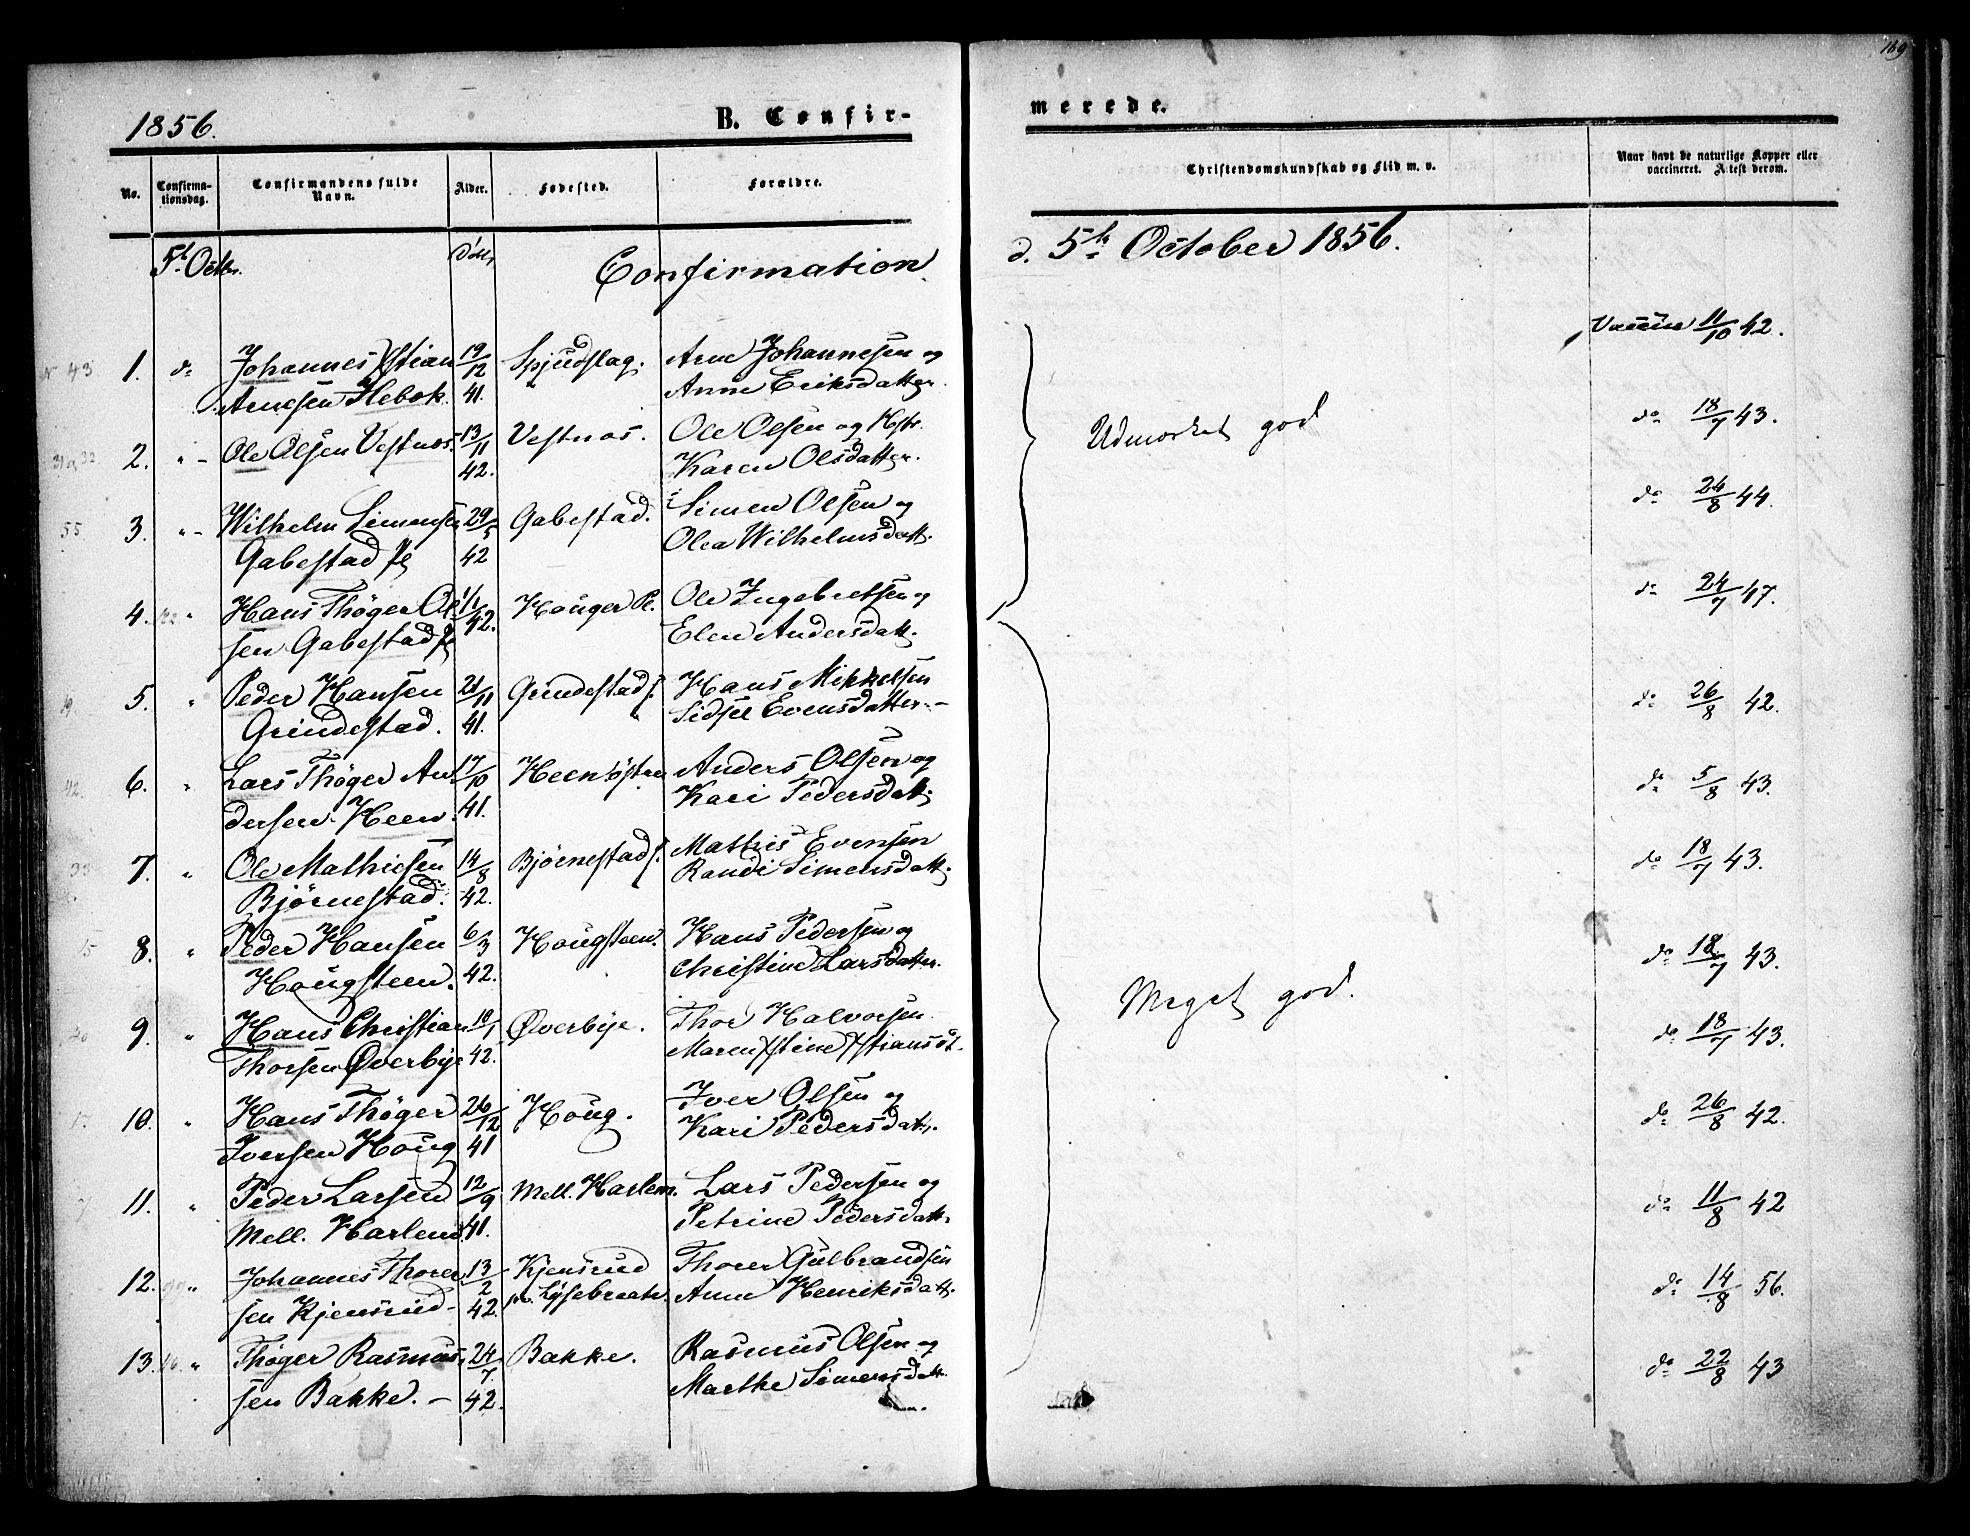 169
1856.
B. Confir-
merede.
No.
Confirma-
tionsdag.
Confirmandens fulde
Navn.
Alder.
Fødested.
Forældre.
Christendomskundskab og Flid m. v.
Naar havt de naturlige Kopper eller
vaccineret. Attest derom.
5t Octbr.
Confirmation
d. 5te October 1856.
N 43 1. do Johannes Xstian 19/12 Spjudslag. Arne Johannesen og Vaccine 11/10 42.
Arnesen Flebok 41. Anne Eriksdatter.
Udmærket god
31 og 32 2. " Ole Olsen Vestnæs. 13/11 Vestnæs. Ole Olsen og Hstr. do 18/7 43.
42. Karen Olsdatter.
55 3. " Wilhelm Simensen 29/5 Gabestad. Simen Olsen og do 24/8 44.
Gabestad 42 Olea Wilhelmsdatt.
4. " Hans Thøger Ol- Houger Ole Ingebretsen og do 24/7 47.
sen Gabestad 42. Elen Andersdatt.
19. 5. " Peder Hansen 21/11 Grindestad Hans Mikkelsen do 26/8 42.
Grindestad. 41. Sidsel Evensdatter.
42. 6. " Lars Thøger An- 17/10 Heen østre Anders Olsen og do 5/8 43.
dersen Heen. 41. Kari Pedersdat.
33 7. " Ole Mathiesen 14/8 Bjørnestad Mathis Evensen do 18/7 43.
Bjørnestad. 42. Randi Simensdatt.
15 8. " Peder Hansen 6/3 Hougsteen. Hans Pedersen og do 18/7 43.
Hougsteen. 42. Christine Larsdatter.
Meget god.
9. " Hans Christian 10/1 Øverbye. Thor Halvorsen do 18/7 43.
Thorsen Øverbye 42. Maren Xstine Xstiansdt.
10. " Hans Thøger 26/12 Houg. Iver Olsen og do 26/8 42.
Iversen Houg 41 Kari Pedersdat.
11. " Peder Larsen 12/9 Mell. Harlem. Lars Pedersen og do 11/8 42
Mell. Harlem. 41. Petrine Pedersdatt.
12. " Johannes Thorer- 13/2 Kjensrud Thorer Gulbrandsen do 14/8 56.
sen Kjensrud 42. Lysebraate. Anne Henriksdatt.
13. " Thøger Rasmus- 24/7 Bakke. Rasmus Olsen og do 22/8 43
sen Bakke. 42. Marthe Simensdatt.